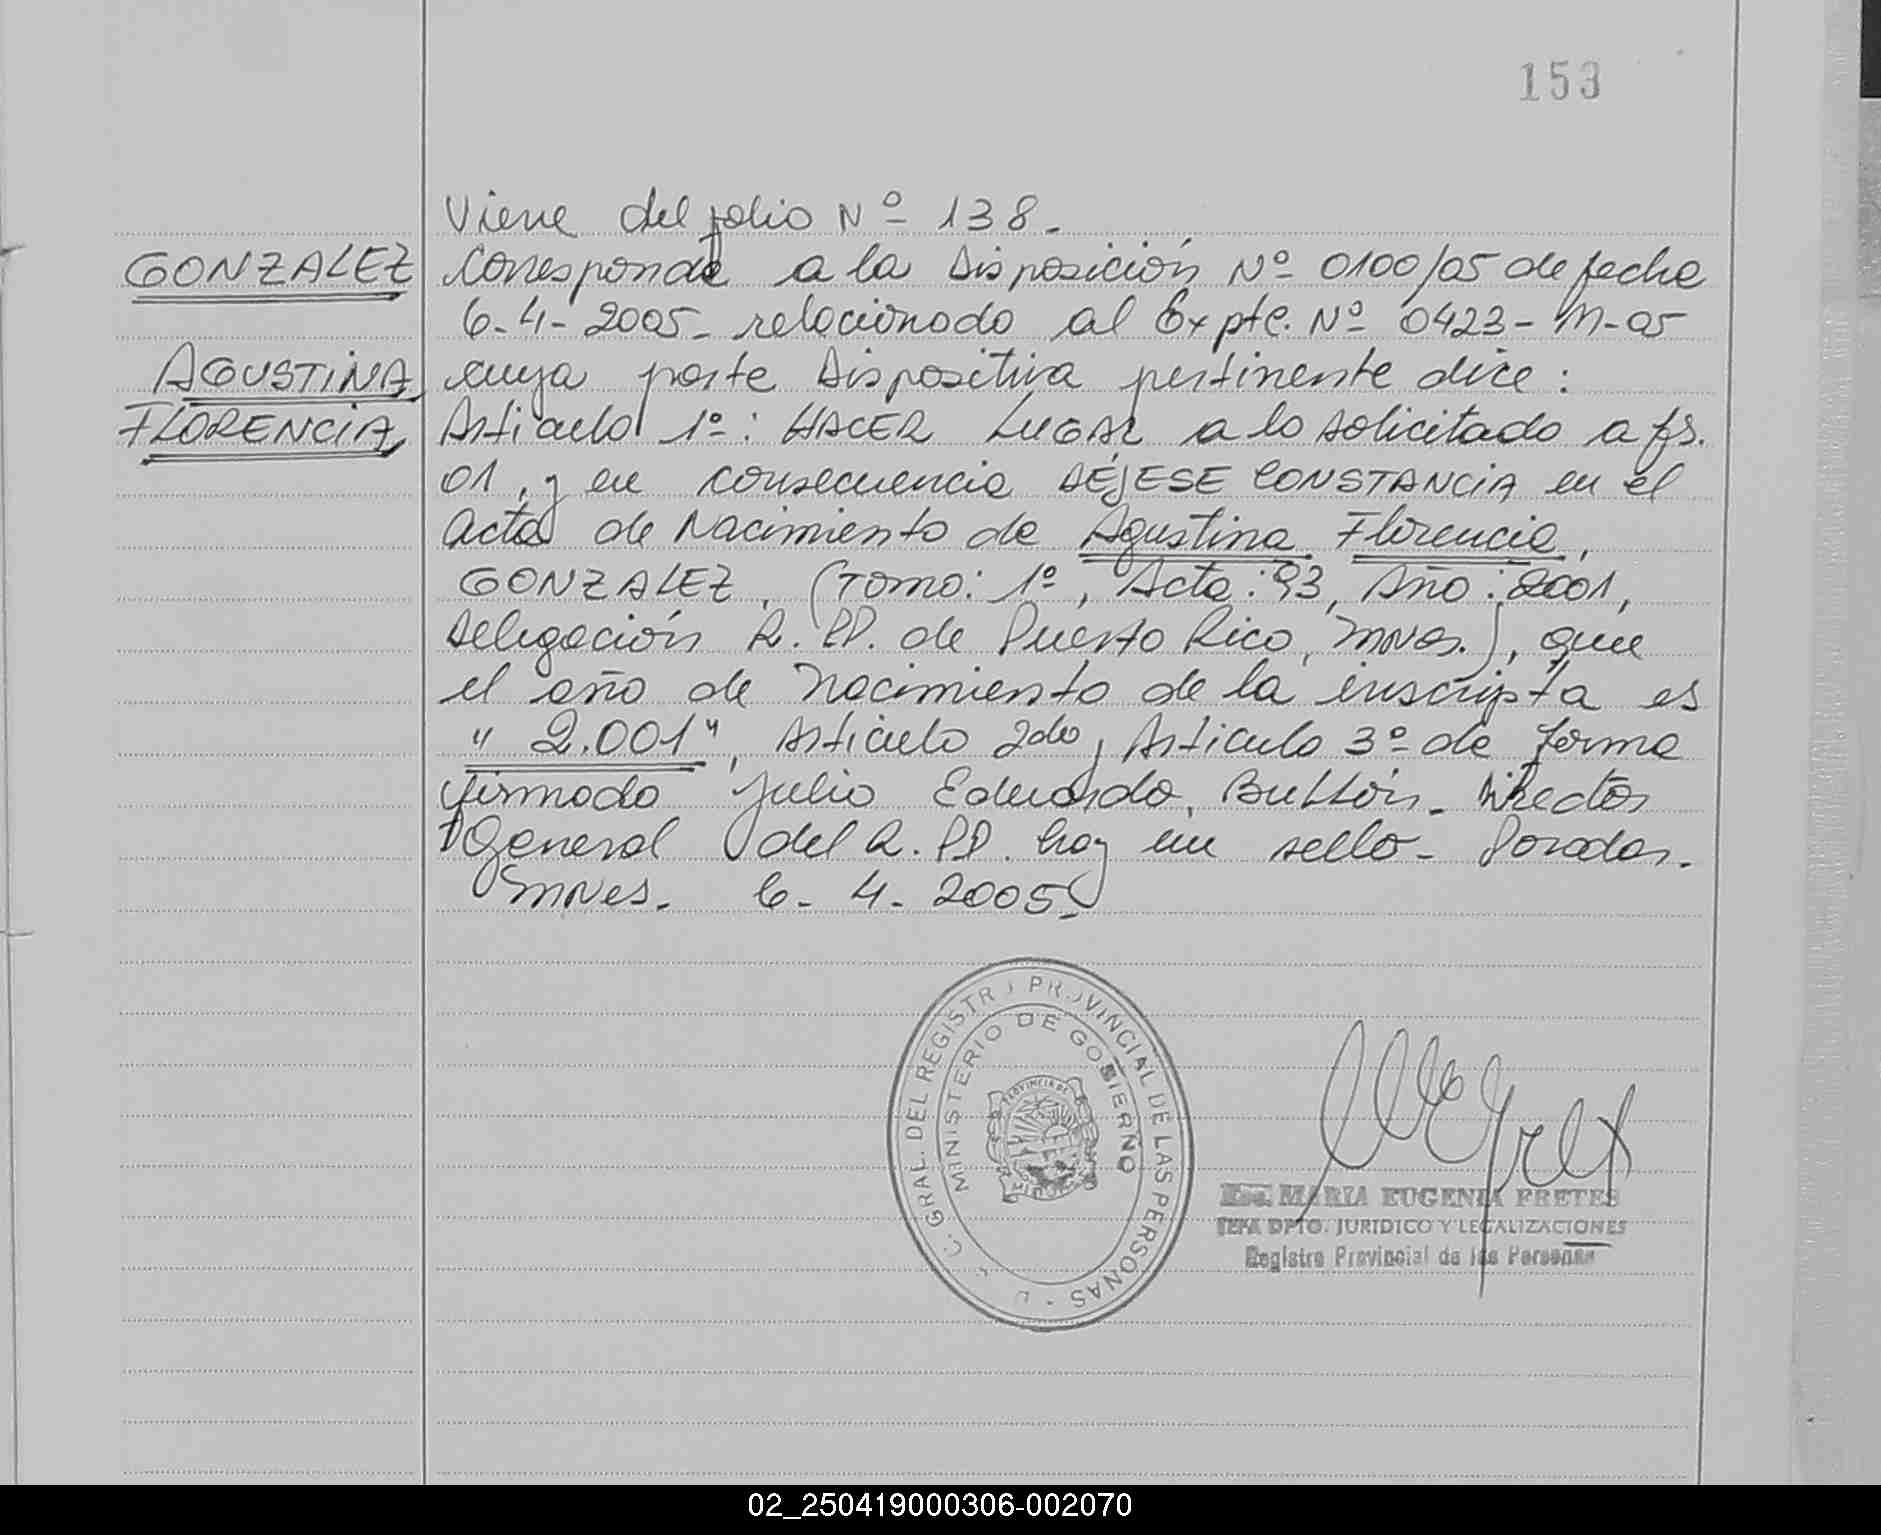 153
Viene del folio Nº 138.
GONZALEZ
Corresponde a la Disposición Nº 0100/05 de fecha
6-4-2005- relacionado al Expte. Nº 0423-M-05
AGUSTINA
cuya parte Dispositiva pertinente dice:
FLORENCIA,
Articulo 1º: HACER LUGAR a lo solicitado a fs.
01, y en consecuencia DÉJESE CONSTANCIA en el
acta de Nacimiento de Agustina Florencia,
GONZALEZ, (Tomo: 1º, Acta: 93, Año: 2001,
Delegación R.PP. de Puerto Rico, Mnes.), que
el año de Nacimiento de la inscripta es
"2.001", Articulo 2do, Articulo 3º de forma
firmado Julio Eduardo, Director
General del R.PP. hay un sello- Posadas.
Mnes. 6-4-2005-
C. GRAL. DEL REGISTRO PROVINCIAL DE LAS PERSONAS - D
MINISTERIO DE GOBIERNO
PROVINCIA DE
MISIONES
Esc. MARIA EUGENIA FRETES
JEFA DPTO. JURIDICO Y LEGALIZACIONES
Registro Provincial de las Personas
02_250419000306-002070